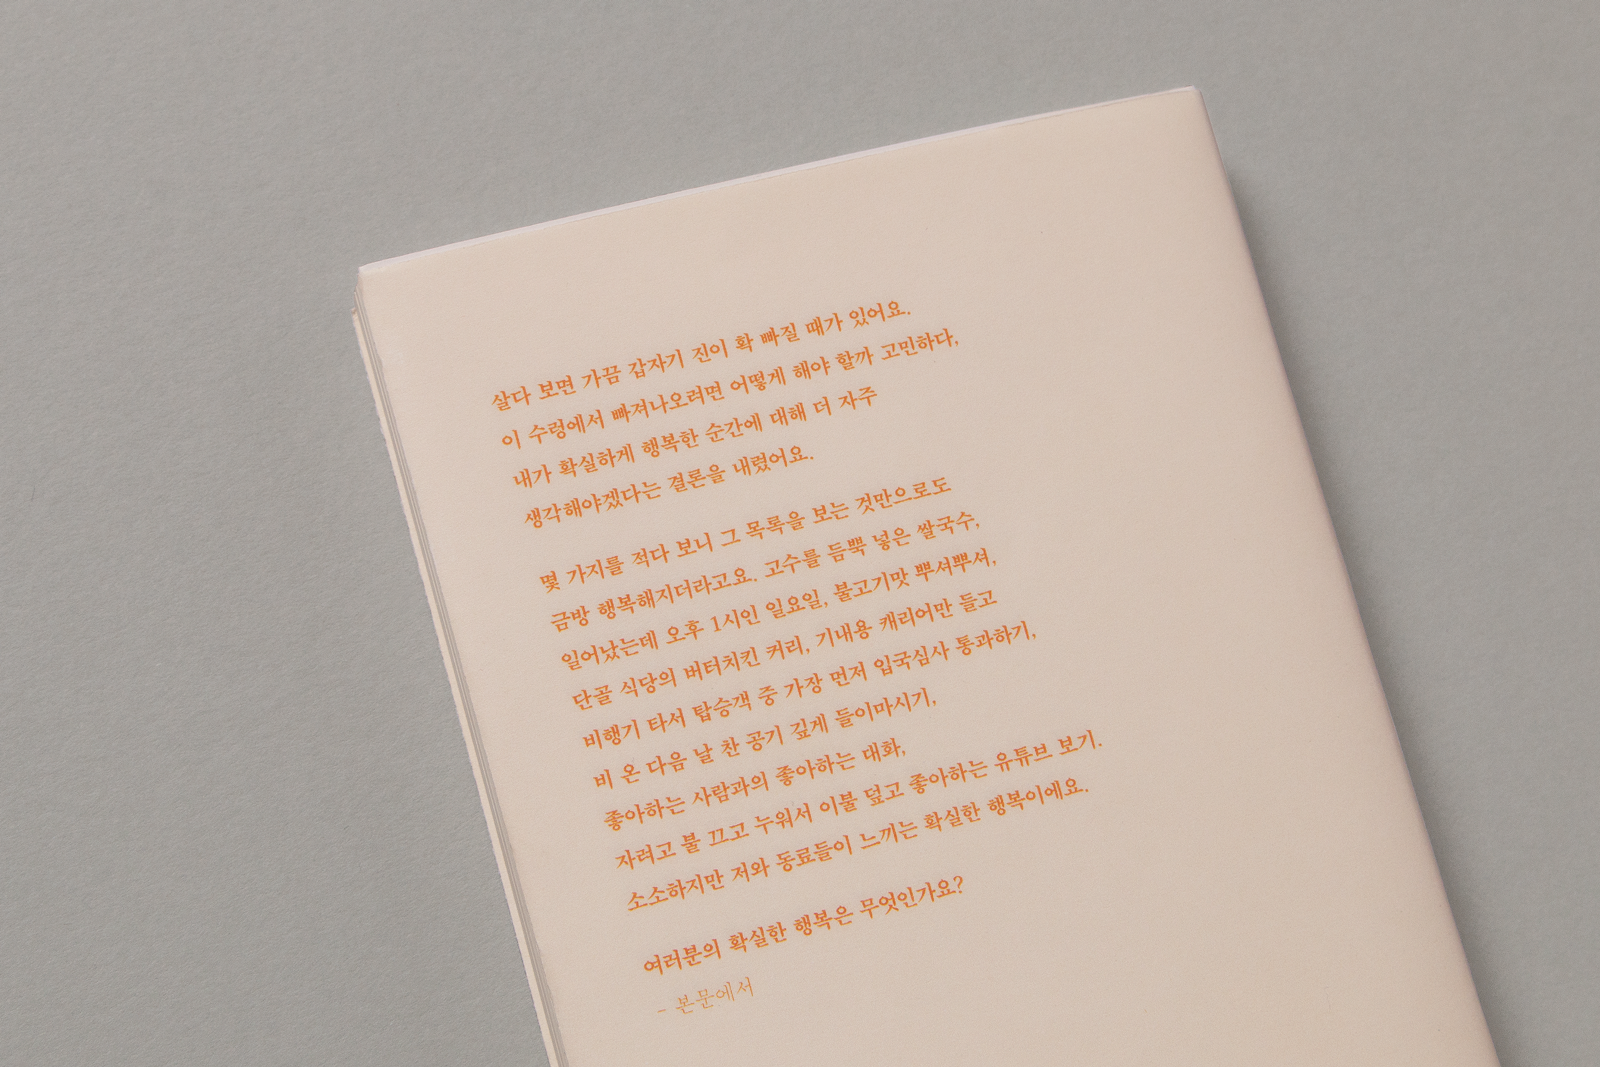 살다 보면 가끔 갑자기 진이 확 빠질 때가 있어요.
이 수렁에서 빠져나오려면 어떻게 해야 할까 고민하다,
내가 확실하게 행복한 순간에 대해 더 자주
생각해야겠다는 결론을 내렸어요.
몇 가지를 적다 보니 그 목록을 보는 것만으로도
금방 행복해지더라고요. 고수를 듬뿍 넣은 쌀국수,
일어났는데 오후 1시인 일요일, 불고기맛 뿌셔뿌셔,
단골 식당의 버터치킨 커리, 기내용 캐리어만 들고
비행기 타서 탑승객 중 가장 먼저 입국심사 통과하기,
비 온 다음 날 찬 공기 깊게 들이마시기,
좋아하는 사람과의 좋아하는 대화,
자려고 불 끄고 누워서 이불 덮고 좋아하는 유튜브 보기.
소소하지만 저와 동료들이 느끼는 확실한 행복이에요.
여러분의 확실한 행복은 무엇인가요?
– 본문에서